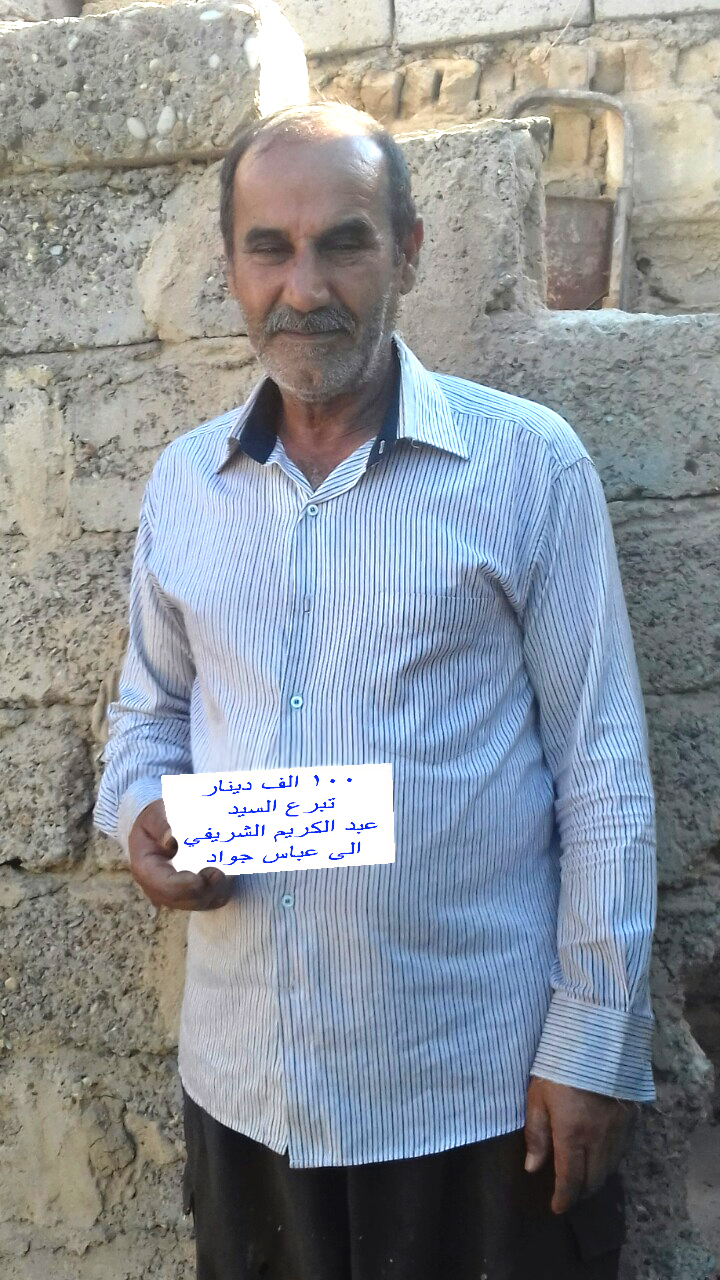 ١٠٠ الف دينار
تبرع السيد
عبد الكريم الشريفي
الى عباس جواد